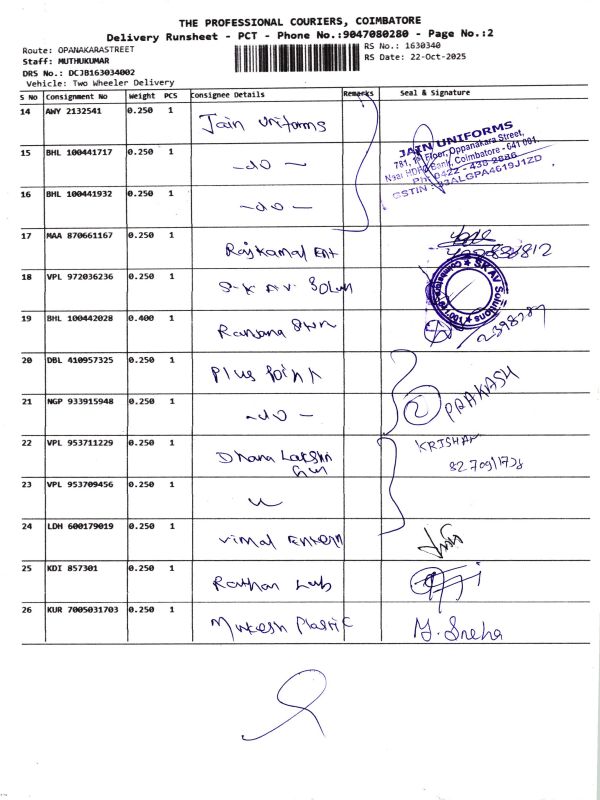 THE PROFESSIONAL COURIERS, COIMBATORE
Delivery Runsheet - PCT - Phone No.:9047080280 - Page No.:2
Route: OPANAKARASTREET
RS No.: 1630340
Staff: MUTHUKUMAR
RS Date: 22-Oct-2025
DRS No.: DCJB163034002
Vehicle: Two Wheeler Delivery
S No Consignment No Weight PCS Consignee Details Remarks Seal & Signature
14 AWY 2132541 0.250 1 Jain Uniforms
JAIN UNIFORMS
781, Floor, Oppanakara Street,
Bank, Coimbatore - 641 001.
15 BHL 100441717 0.250 1 -do-
16 BHL 100441932 0.250 1 -do-
17 MAA 870661167 0.250 1 Rajkamal Ent
18 VPL 972036236 0.250 1 S.K A.V Soluh
SK AV Solutions
19 BHL 100442028 0.400 1 Ranjana
20 DBL 410957325 0.250 1 Plus Point
2 PRAKASH
21 NGP 933915948 0.250 1 -do-
22 VPL 953711229 0.250 1 Dhana Lakshmi
KRISHAN
23 VPL 953709456 0.250 1
24 LDH 600179019 0.250 1 Vimal
25 KDI 857301 0.250 1 Rathan Lab
26 KUR 7005031703 0.250 1 Mukesh Plastic M. Sneha